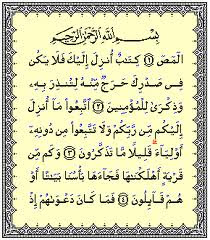 بِسْمِ اللَّهِ الرَّحْمَٰنِ الرَّحِيمِ
الٓمٓصٓ ١ كِتَٰبٌ أُنزِلَ إِلَيْكَ فَلَا يَكُن
فِى صَدْرِكَ حَرَجٌ مِّنْهُ لِتُنذِرَ بِهِۦ
وَذِكْرَىٰ لِلْمُؤْمِنِينَ ٢ ٱتَّبِعُوا۟ مَآ أُنزِلَ
إِلَيْكُم مِّن رَّبِّكُمْ وَلَا تَتَّبِعُوا۟ مِن دُونِهِۦٓ
أَوْلِيَآءَ قَلِيلًا مَّا تَذَكَّرُونَ ٣ وَكَم مِّن
قَرْيَةٍ أَهْلَكْنَٰهَا فَجَآءَهَا بَأْسُنَا بَيَٰتًا أَوْ
هُمْ قَآئِلُونَ ٤ فَمَا كَانَ دَعْوَىٰهُمْ إِذْ